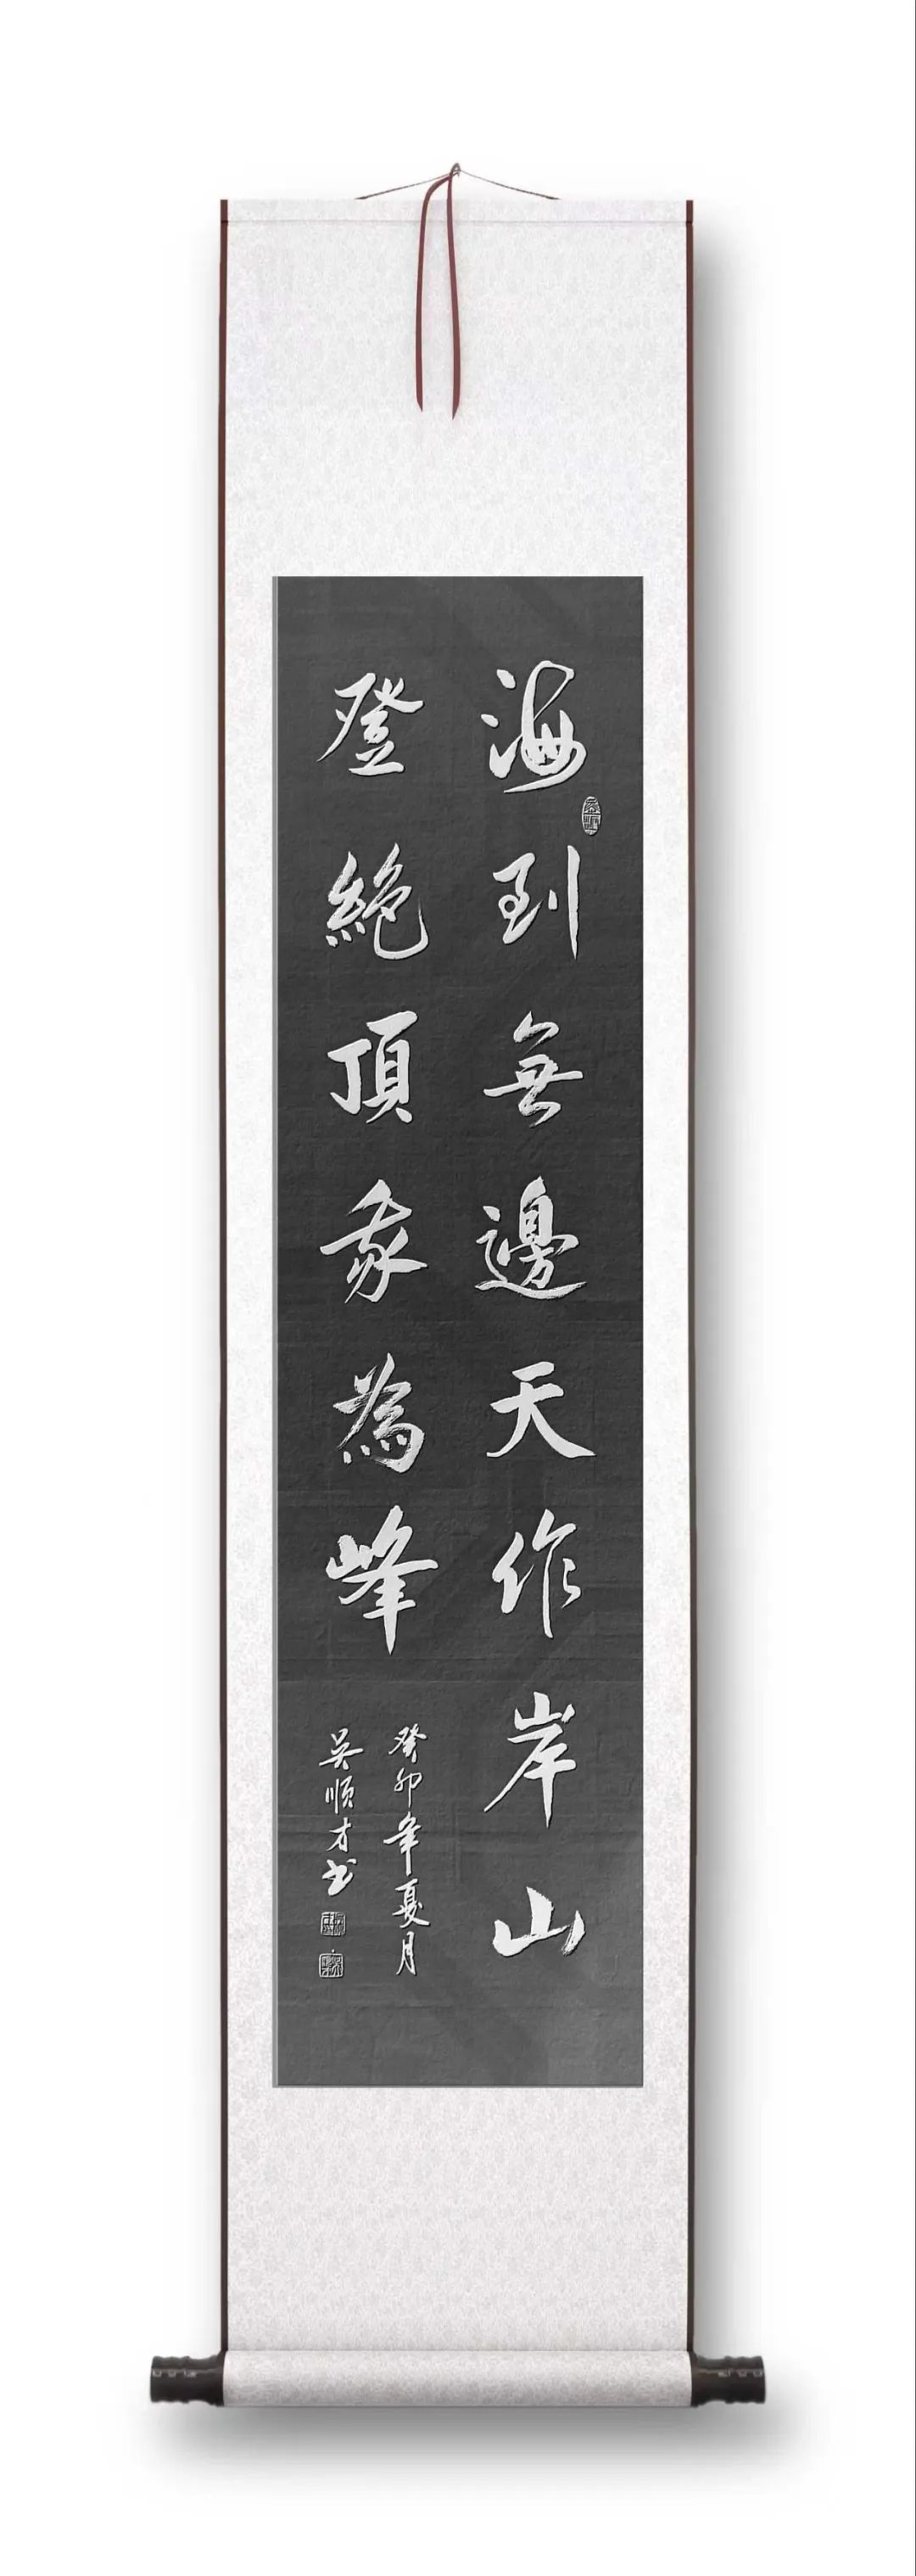 海到無邊天作岸山
登絕頂我為峰
癸卯年夏月
吳順才書